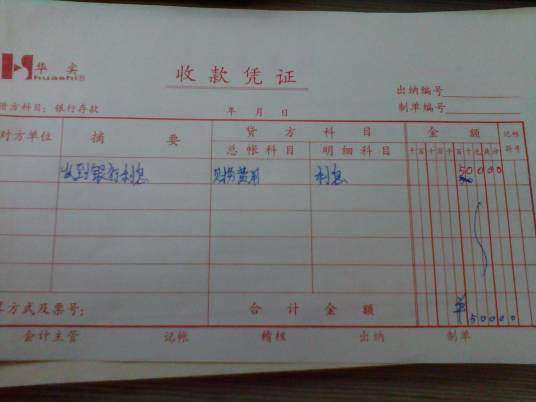 华实 收款凭证
huashi®
出纳编号
借方科目：银行存款 年 月 日 制单编号
对方单位 摘要 贷方科目 金额 记帐符号
总帐科目 明细科目 千百十千百十元角分
收到银行利息 财务费用 利息 50000
算方式及票号： 合计金额 50000
会计主管 记帐 稽核 出纳 制单